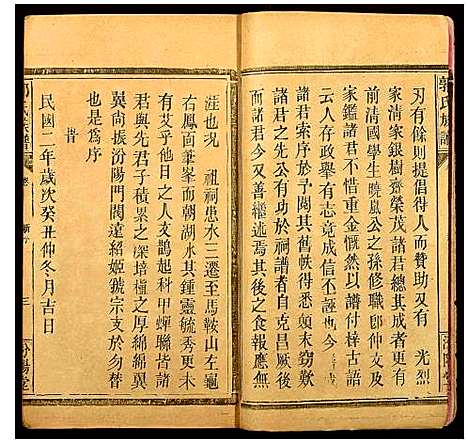 郭氏族譜
刃有餘則提倡得人而贊助又有 光烈
家清家銀樹齋榮茂諸君總其成者更有
前清國學生曉嵐公之孫修職郎仲文及
家鑑諸君不惜重金慨然以譜付梓古語
云人存政舉有志竟成信不誣也 光
烈素問索序於予閱其舊帙得悉顛末竊歎
諸君之先公有功於祠譜者自克昌厥後
而諸君又善繼述焉者意後之食報應無
涯也况 祖祠患水三遷至馬鞍山左龜
右鳳面筆峯而朝湖水其鍾靈毓秀更未
有艾乎他日之人文鵲起科甲蟬聯皆諸
君與先君子積累之深培植之厚綿綿翼
翼向振汾陽門閥遠紹姬虢宗支於勿替
也是爲序
旹
民國二年歲次癸丑仲冬月吉日
三